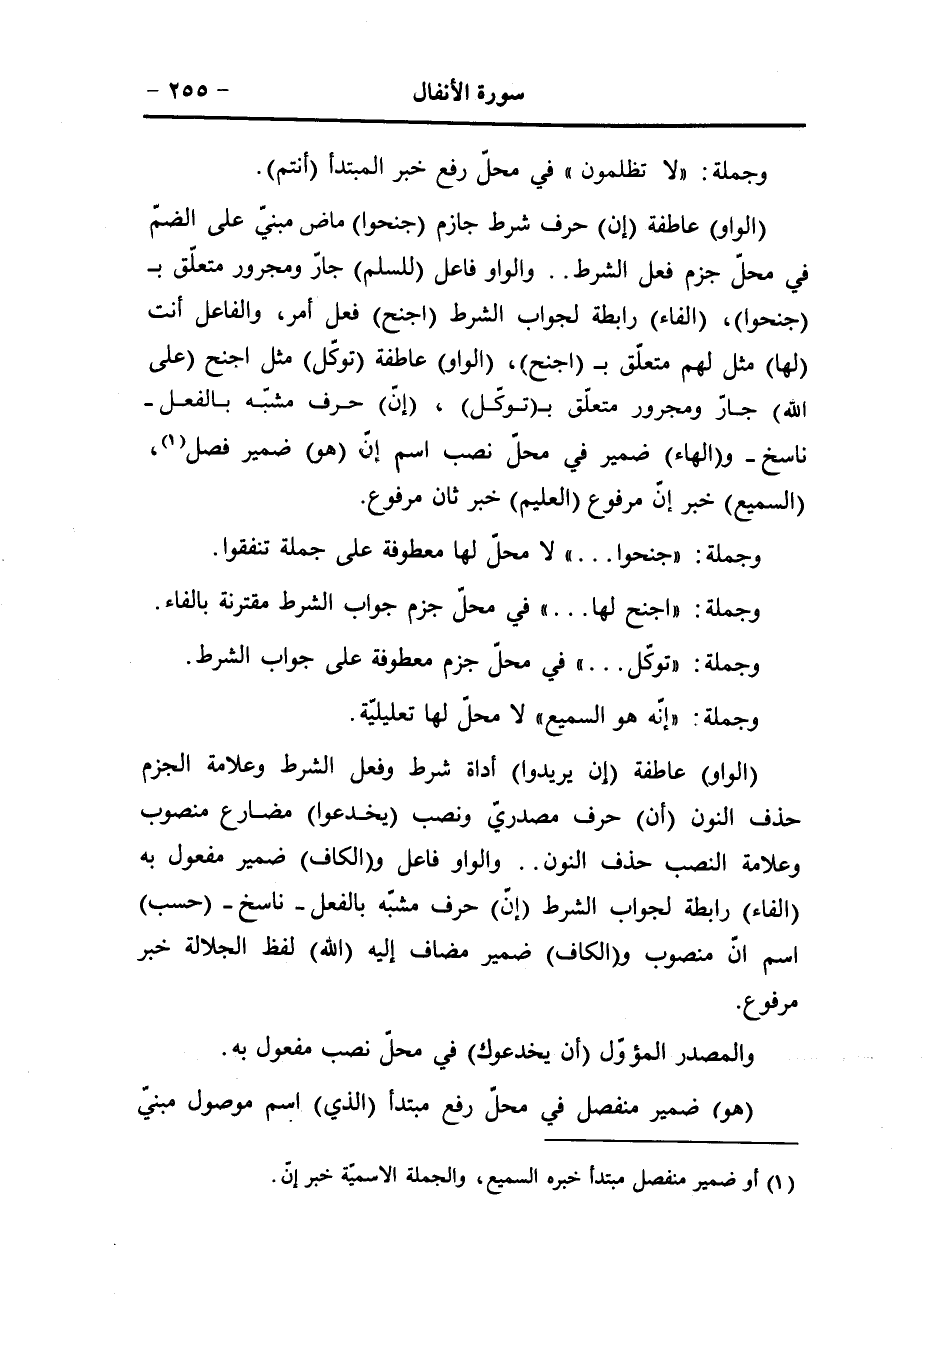 سورة الأنفال - ٢٥٥ -
وجملة: «لا تظلمون» في محلّ رفع خبر المبتدأ (أنتم).
(الواو) عاطفة (إن) حرف شرط جازم (جنحوا) ماض مبنيّ على الضمّ
في محلّ جزم فعل الشرط.. والواو فاعل (للسلم) جارّ ومجرور متعلّق بـ
(جنحوا)، (الفاء) رابطة لجواب الشرط (اجنح) فعل أمر، والفاعل أنت
(لها) مثل لهم متعلّق بـ (اجنح)، (الواو) عاطفة (توكّل) مثل اجنح (على
الله) جارّ ومجرور متعلّق بـ(توكّل) ، (إنّ) حرف مشبّه بالفعل-
ناسخ- و(الهاء) ضمير في محلّ نصب اسم إنّ (هو) ضمير فصل(١)،
(السميع) خبر إنّ مرفوع (العليم) خبر ثان مرفوع.
وجملة: «جنحوا...» لا محلّ لها معطوفة على جملة تنفقوا.
وجملة: «اجنح لها...» في محلّ جزم جواب الشرط مقترنة بالفاء.
وجملة: «توكّل...» في محلّ جزم معطوفة على جواب الشرط.
وجملة: «إنّه هو السميع» لا محلّ لها تعليليّة.
(الواو) عاطفة (إن يريدوا) أداة شرط وفعل الشرط وعلامة الجزم
حذف النون (أن) حرف مصدريّ ونصب (يخدعوا) مضارع منصوب
وعلامة النصب حذف النون.. والواو فاعل و(الكاف) ضمير مفعول به
(الفاء) رابطة لجواب الشرط (إنّ) حرف مشبّه بالفعل- ناسخ- (حسب)
اسم انّ منصوب و(الكاف) ضمير مضاف إليه (الله) لفظ الجلالة خبر
مرفوع.
والمصدر المؤوّل (أن يخدعوك) في محلّ نصب مفعول به.
(هو) ضمير منفصل في محلّ رفع مبتدأ (الذي) اسم موصول مبنيّ
(١) أو ضمير منفصل مبتدأ خبره السميع، والجملة الاسميّة خبر إنّ.